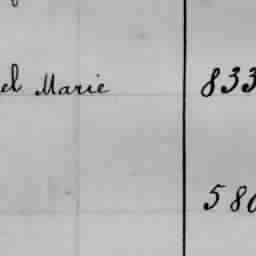 el Marie 833
580